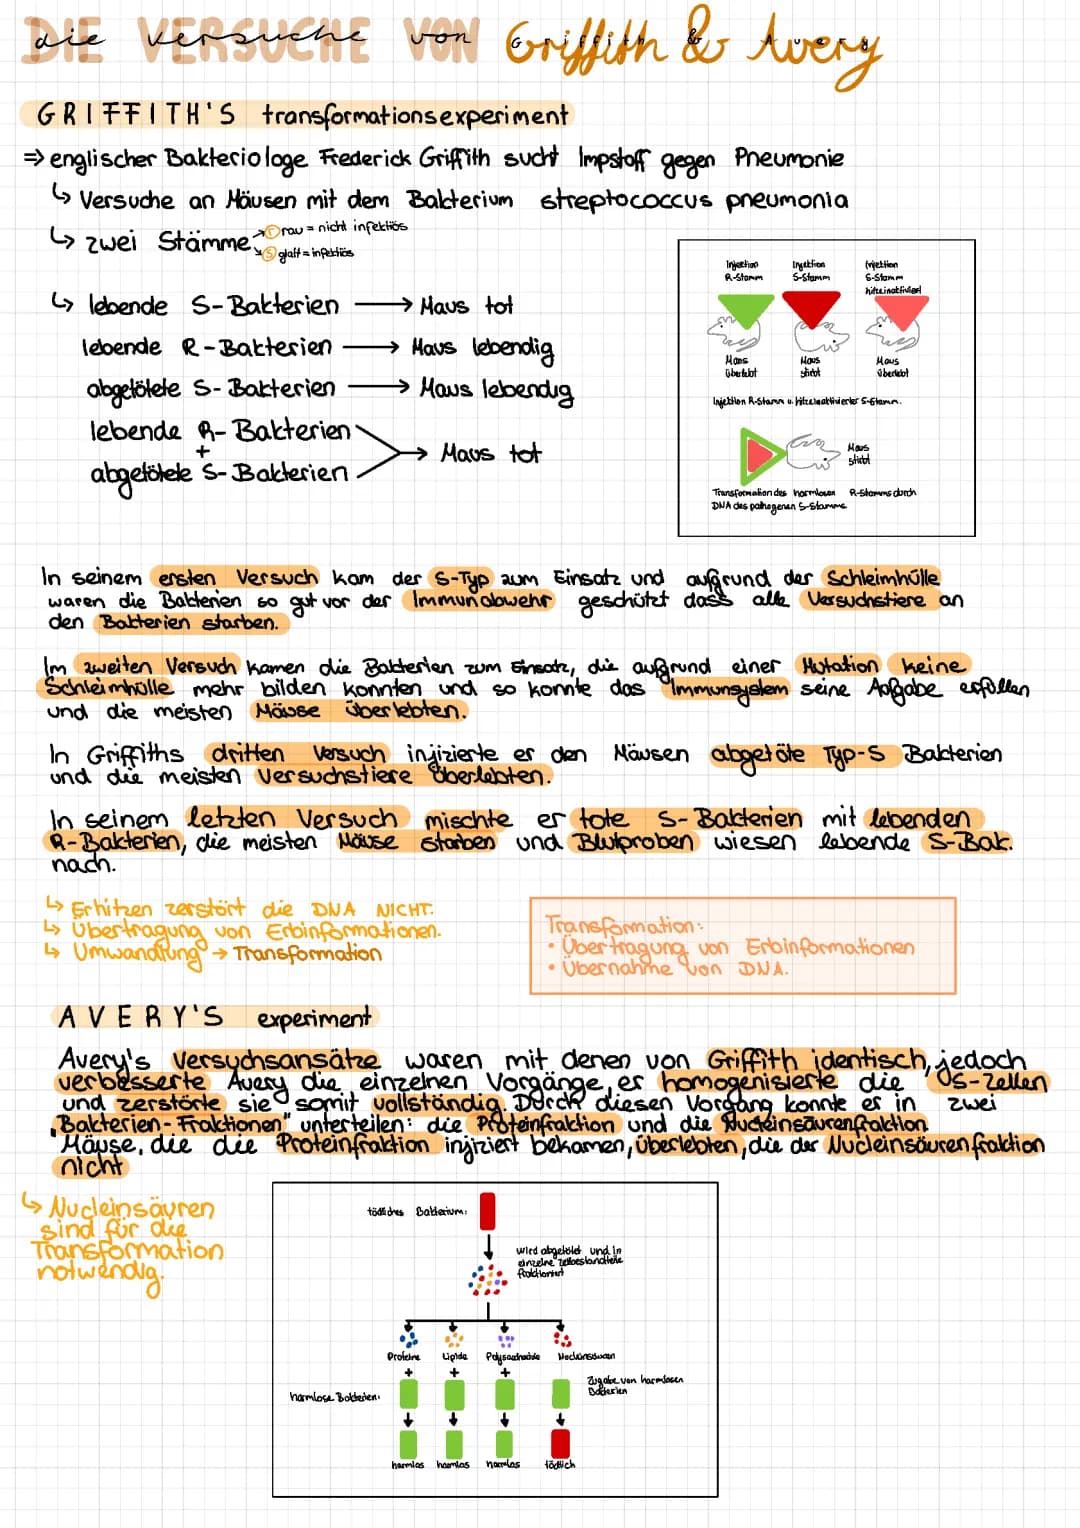 DIE VERSUCHE VON Griffith & Avery
GRIFFITH'S transformationsexperiment
⇒ englischer Bakteriologe Frederick Griffith sucht Impstoff gegen Pneumonie
↳ Versuche an Mäusen mit dem Bakterium streptococcus pneumonia
↳ zwei Stämme
→ r rau = nicht infektiös
→ S glatt = infektiös
↳ lebende S-Bakterien → Maus tot
lebende R-Bakterien → Maus lebendig
abgetötete S-Bakterien → Maus lebendig
lebende R-Bakterien
+
abgetötete S-Bakterien
→ Maus tot
Injektion
R-Stamm
Injektion
S-Stamm
Injektion
S-Stamm
hitzeinaktiviert
Maus
überlebt
Maus
stirbt
Maus
überlebt
Injektion R-Stamm u. hitzeinaktivierter S-Stamm.
Maus
stirbt
Transformation des harmlosen R-Stamms durch
DNA des pathogenen S-Stamms
In seinem ersten Versuch kam der S-Typ zum Einsatz und aufgrund der Schleimhülle
waren die Bakterien so gut vor der Immunabwehr geschützt dass alle Versuchstiere an
den Bakterien starben.
Im zweiten Versuch kamen die Bakterien zum Einsatz, die aufgrund einer Mutation keine
Schleimhülle mehr bilden konnten und so konnte das Immunsystem seine Aufgabe erfüllen
und die meisten Mäuse überlebten.
In Griffiths dritten Versuch injizierte er den Mäusen abgetöte Typ-S Bakterien
und die meisten Versuchstiere überlebten.
In seinem letzten Versuch mischte er tote S-Bakterien mit lebenden
R-Bakterien, die meisten Mäuse starben und Blutproben wiesen lebende S-Bak.
nach.
↳ Erhitzen zerstört die DNA NICHT.
↳ Übertragung von Erbinformationen.
↳ Umwandlung → Transformation
Transformation:
• Übertragung von Erbinformationen
• Übernahme von DNA.
AVERY'S experiment
Avery's Versuchsansätze waren mit denen von Griffith identisch, jedoch
verbesserte Avery die einzelnen Vorgänge, er homogenisierte die S-Zellen
und zerstörte sie somit vollständig. Durch diesen Vorgang konnte er in zwei
„Bakterien-Fraktionen" unterteilen: die Proteinfraktion und die Nucleinsäurenfraktion.
Mäuse, die die Proteinfraktion injiziert bekamen, überlebten, die der Nucleinsäurenfraktion
nicht
↳ Nucleinsäuren
sind für die
Transformation
notwendig.
tödliches Bakterium:
wird abgetötet und in
einzelne Zellbestandteile
fraktioniert
Proteine Lipide Polysaccharide Nucleinsäuren
+ + +
harmlose Bakterien:
Zugabe von harmlosen
Bakterien
harmlos harmlos harmlos tödlich